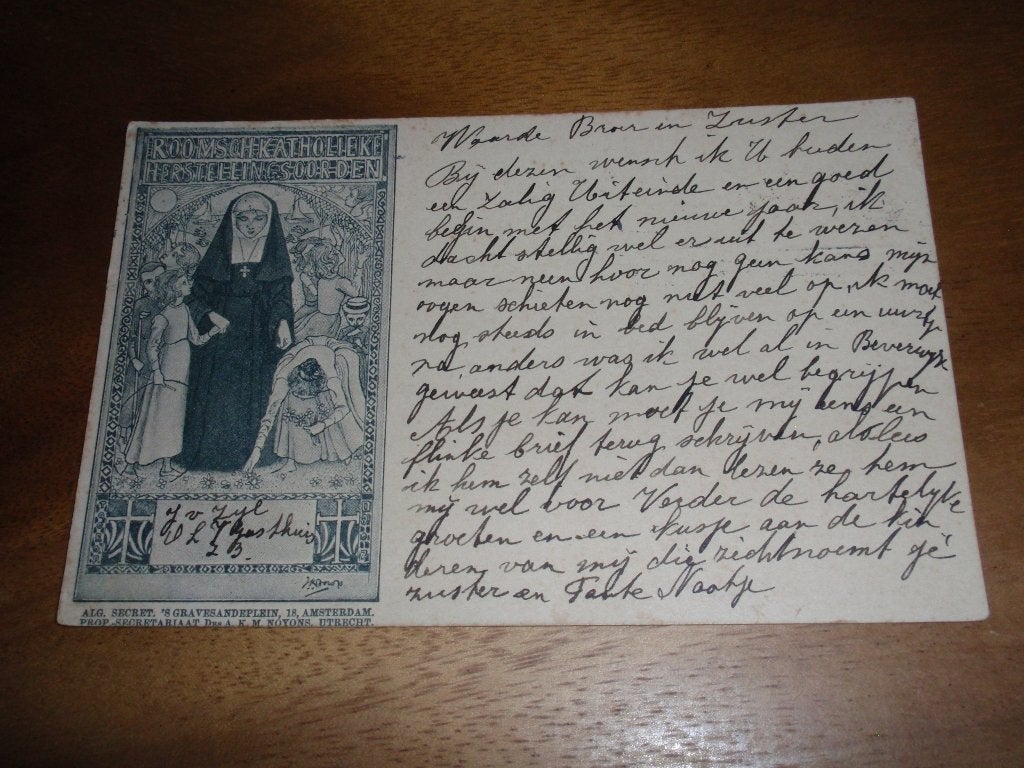 ROOMSCH KATHOLIEK
HERSTELLINGSOORDEN
J v Zyl
W L Gasthuis
Z B.
ALG. SECRET. 'S GRAVESANDEPLEIN, 18, AMSTERDAM.
PROP.-SECRETARIAAT DRS A. K. M. NOYONS, UTRECHT.
Waarde Broer en Zuster
Bij dezen wensch ik U beiden
een Zalig Uiteinde en een goed
begin met het nieuwe jaar, ik
dacht stellig wel er uit te wezen
maar neen hoor nog geen kans mijn
oogen schieten nog niet veel op, ik moet
nog steeds in bed blijven op een uurtje
na, anders was ik wel al in Beverwijk
geweest dat kan je wel begrijpen
Als je kan moet je mij eens een
flinke brief terug schrijven, al lees
ik hem zelf niet dan lezen ze hem
mij wel voor Verder de hartelijke
groeten en een kusje aan de kin
deren van mij die zicht noemt je
zuster en Tante Naatje